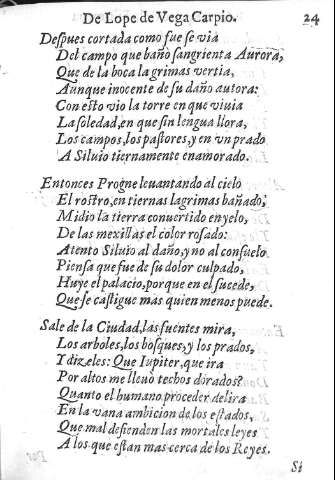 De Lope de Vega Carpio. 24
Despues cortada como fue se via
Del campo que baño sangrienta Aurora,
Que de la boca lagrimas vertia,
Aunque inocente de su daño autora:
Con esto vio la torre en que viuia
La soledad, en que sin lengua llora,
Los campos, los pastores, y en vn prado
A Siluio tiernamente enamorado.
Entonces Progne leuantando al cielo
El rostro, en tiernas lagrimas bañado,
Midio la tierra conuertido en yelo,
De las mexillas el color rosado:
Atento Siluio al daño, y no al consuelo
Piensa que fue de su dolor culpado,
Huye el palacio, porque en el sucede,
Que se castigue mas quien menos puede.
Sale de la Ciudad, las fuentes mira,
Los arboles, los bosques, y los prados,
Y dizeles: Que Iupiter, que ira
Por altos me lleuò techos dorados?
Quanto el humano proceder delira
En la vana ambicion de los estados,
Que mal defienden las mortales leyes
A los que estan mas cerca de los Reyes.
Si